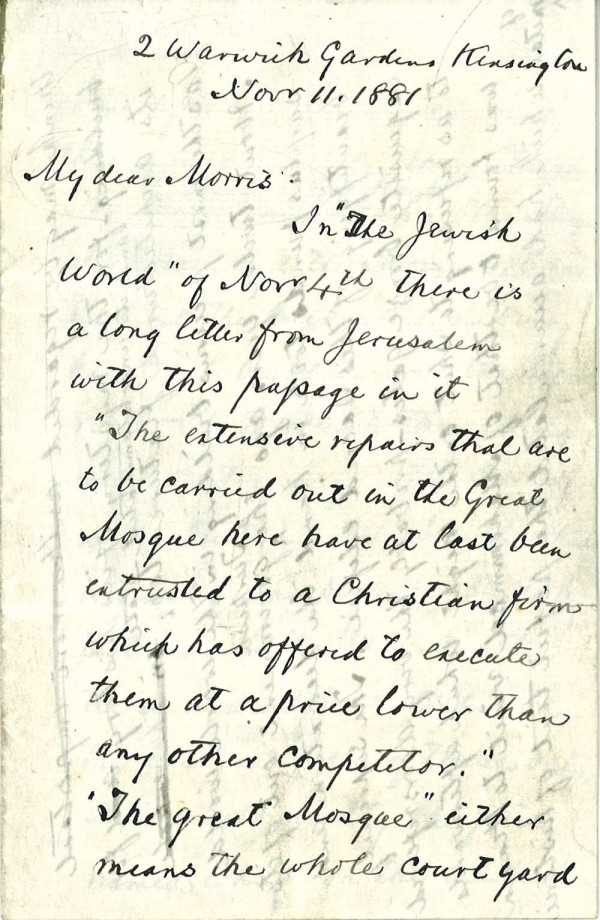 2 Warwick Gardens Kensington
Novr 11. 1881
My dear Morris
In "The Jewish
World" of Novr 4th there is
a long letter from Jerusalem
with this passage in it
"The extensive repairs that are
to be carried out in the Great
Mosque here have at last been
entrusted to a Christian firm
which has offered to execute
them at a price lower than
any other competitor."
"The great Mosque" either
means the whole court yard